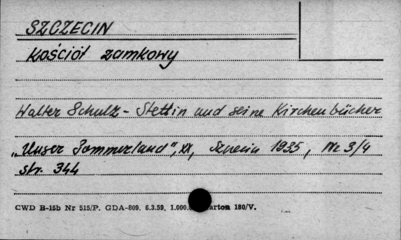 SZCZECIN
Kościół zamkowy
Walter Schulz - Stettin und seine Kirchenbücher
„Unser Pommerland", XX, 1935, Nr 3/4
str. 344
CWD B-15b Nr 515/P. GDA-809. 6.3.59. 1.000. karton 180/V.